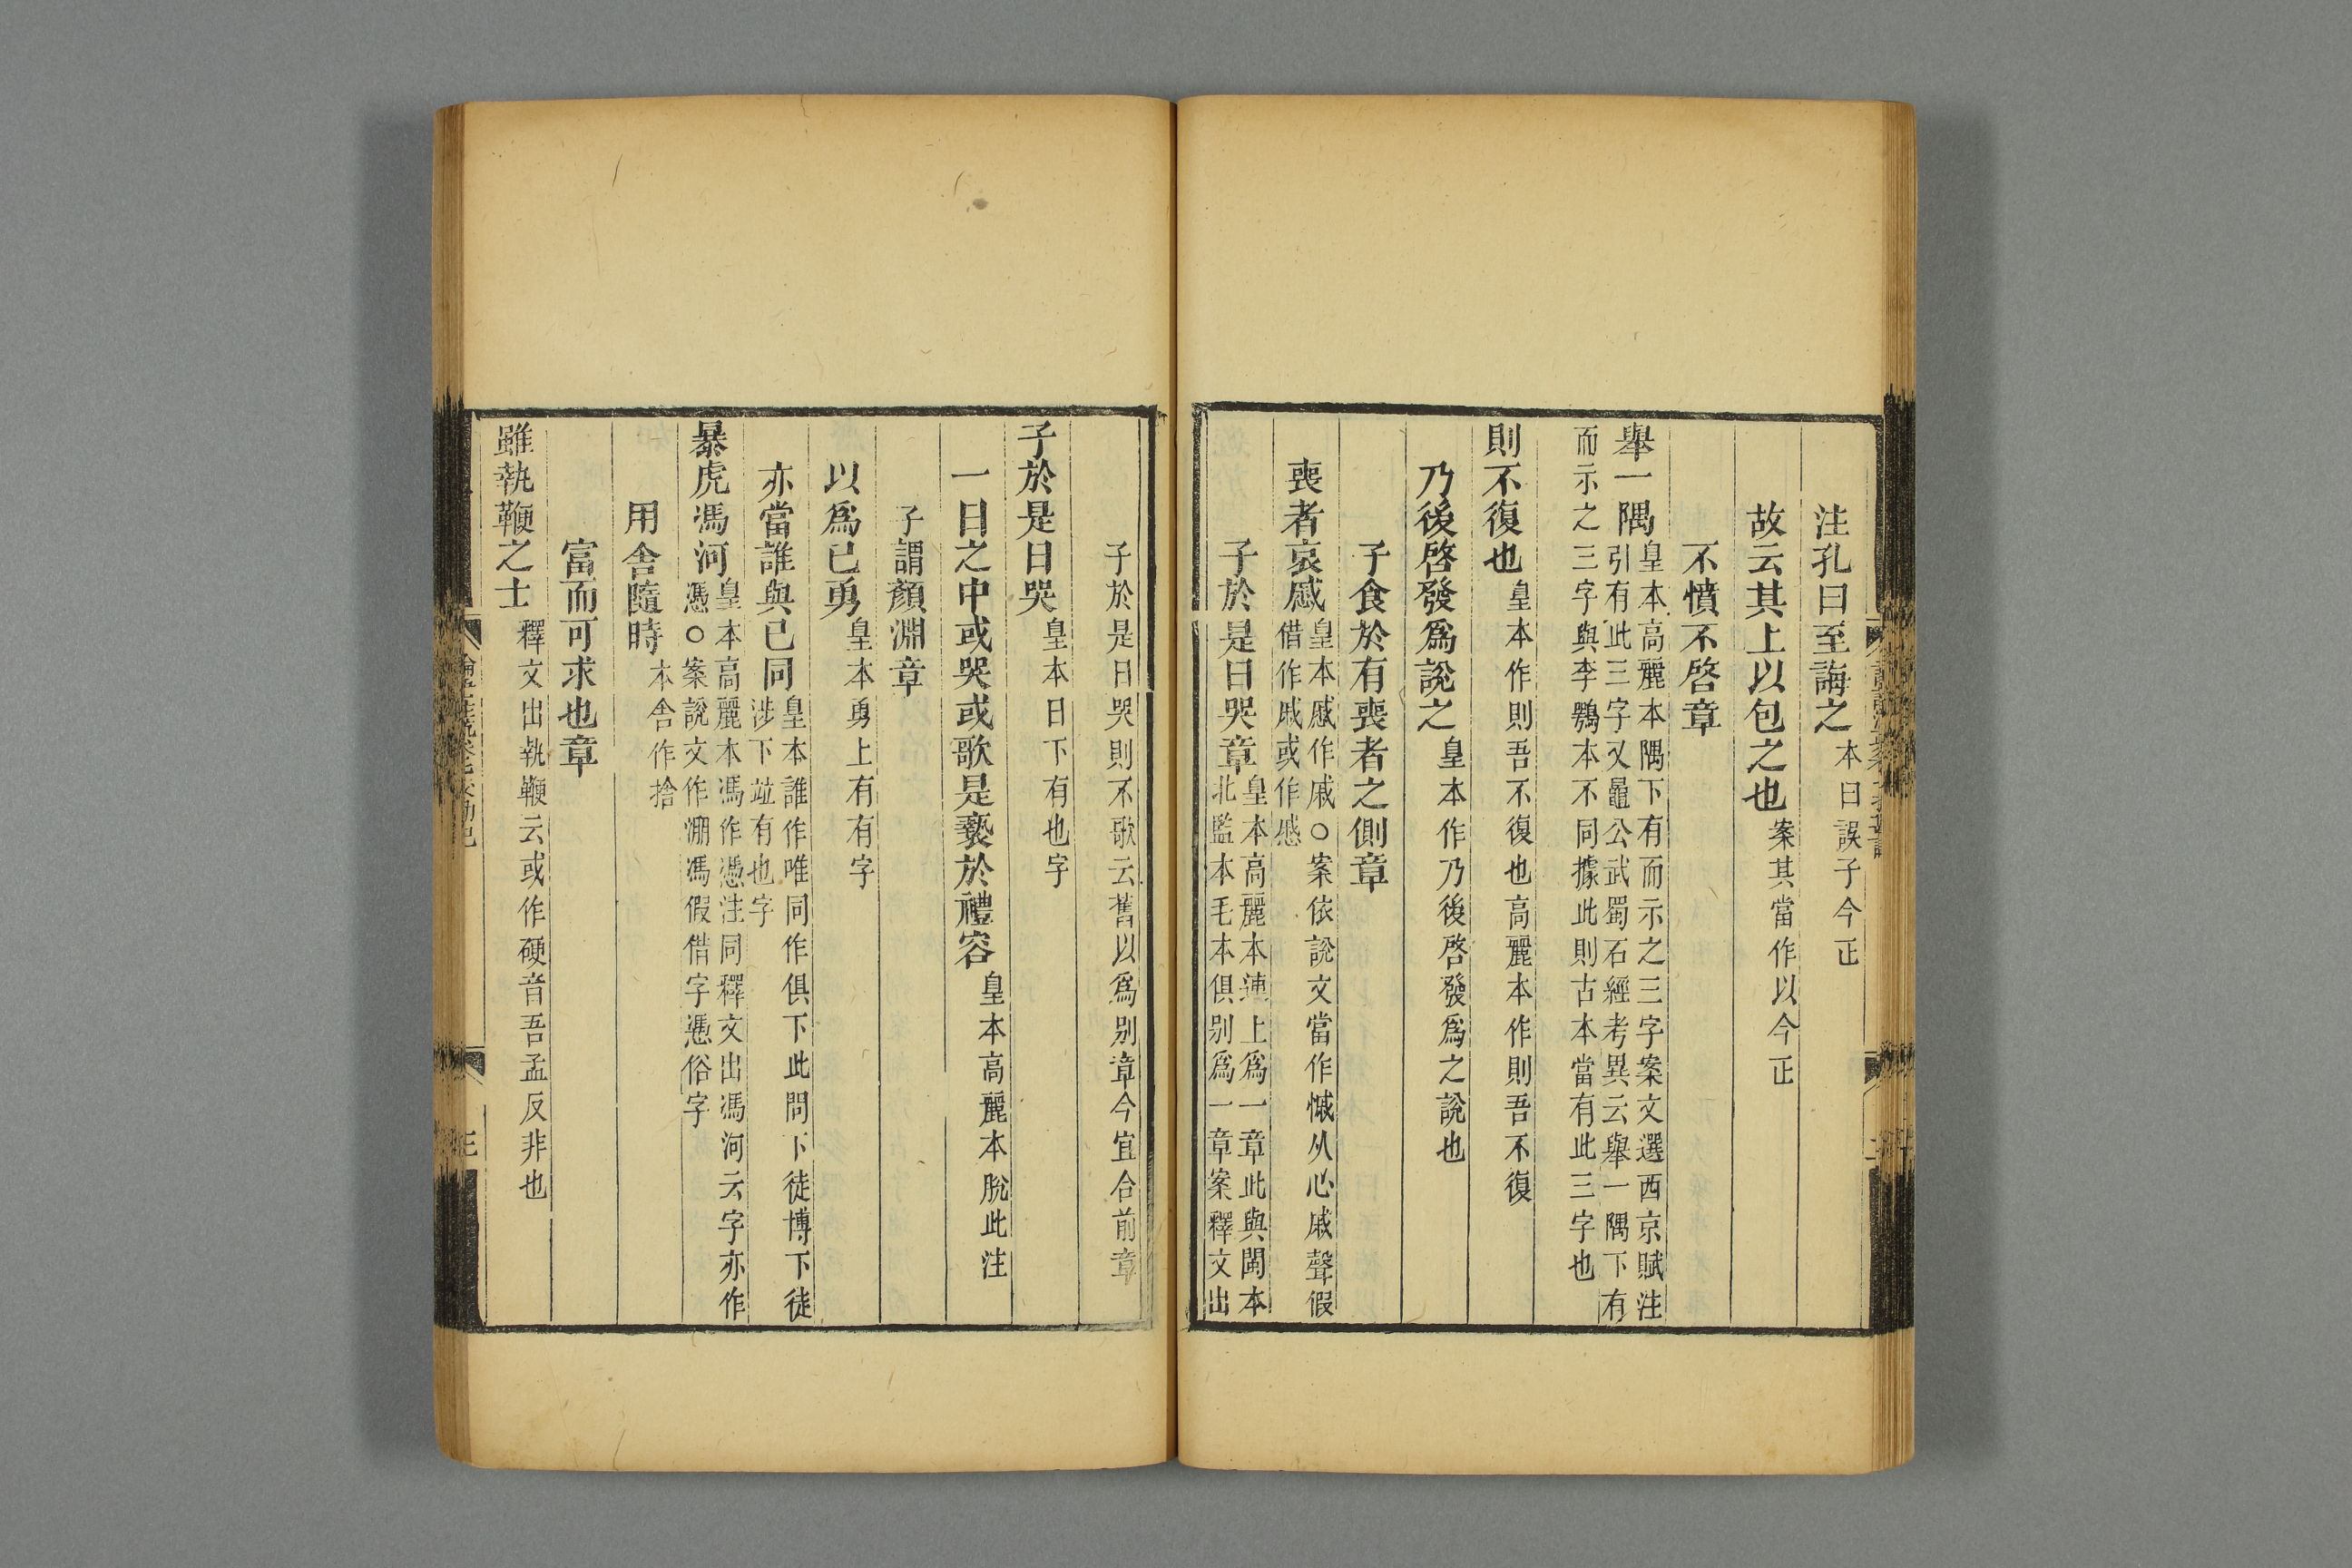 注孔曰至誨之本曰誤子今正
故云其上以包之也案其當作以今正
不憤不啓章
舉一隅皇本高麗本隅下有而示之三字案文選西京賦注
引有此三字又鼂公武蜀石經考異云舉一隅下有
而示之三字與李鶚本不同據此則古本當有此三字也
則不復也皇本作則吾不復也高麗本作則吾不復
乃後啓發爲說之皇本作乃後啓發爲之說也
子食於有喪者之側章
喪者哀慼皇本慼作戚○案依說文當作慽从心戚聲假
借作戚或作慼
子於是日哭章皇本高麗本連上爲一章此與閩本
北監本毛本俱别爲一章案釋文出
子於是日哭則不歌云舊以爲别章今宜合前章
子於是日哭皇本日下有也字
一日之中或哭或歌是褻於禮容皇本高麗本脫此注
子謂顏淵章
以爲己勇皇本勇上有有字
亦當誰與己同皇本誰作唯同作俱下此問下徒博下徒
涉下竝有也字
暴虎馮河皇本高麗本馮作憑注同釋文出馮河云字亦作
憑○案說文作淜馮假借字憑俗字
用舍隨時本舍作捨
富而可求也章
雖執鞭之士釋文出執鞭云或作硬音吾孟反非也